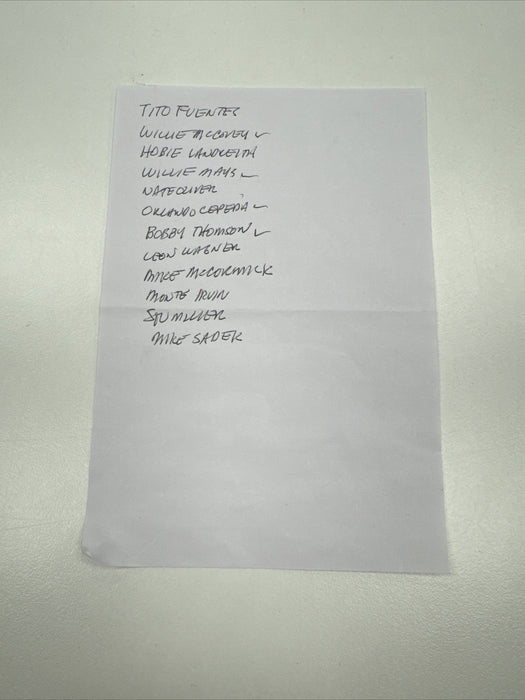 TITO FUENTES
WILLIE MCCOVEY ✓
HOBIE LANDRITH
WILLIE MAYS ✓
NATE OLIVER
ORLANDO CEPEDA ✓
BOBBY THOMSON ✓
LEON WAGNER
MIKE MCCORMICK
MONTE IRVIN
STU MILLER
MIKE SADEK